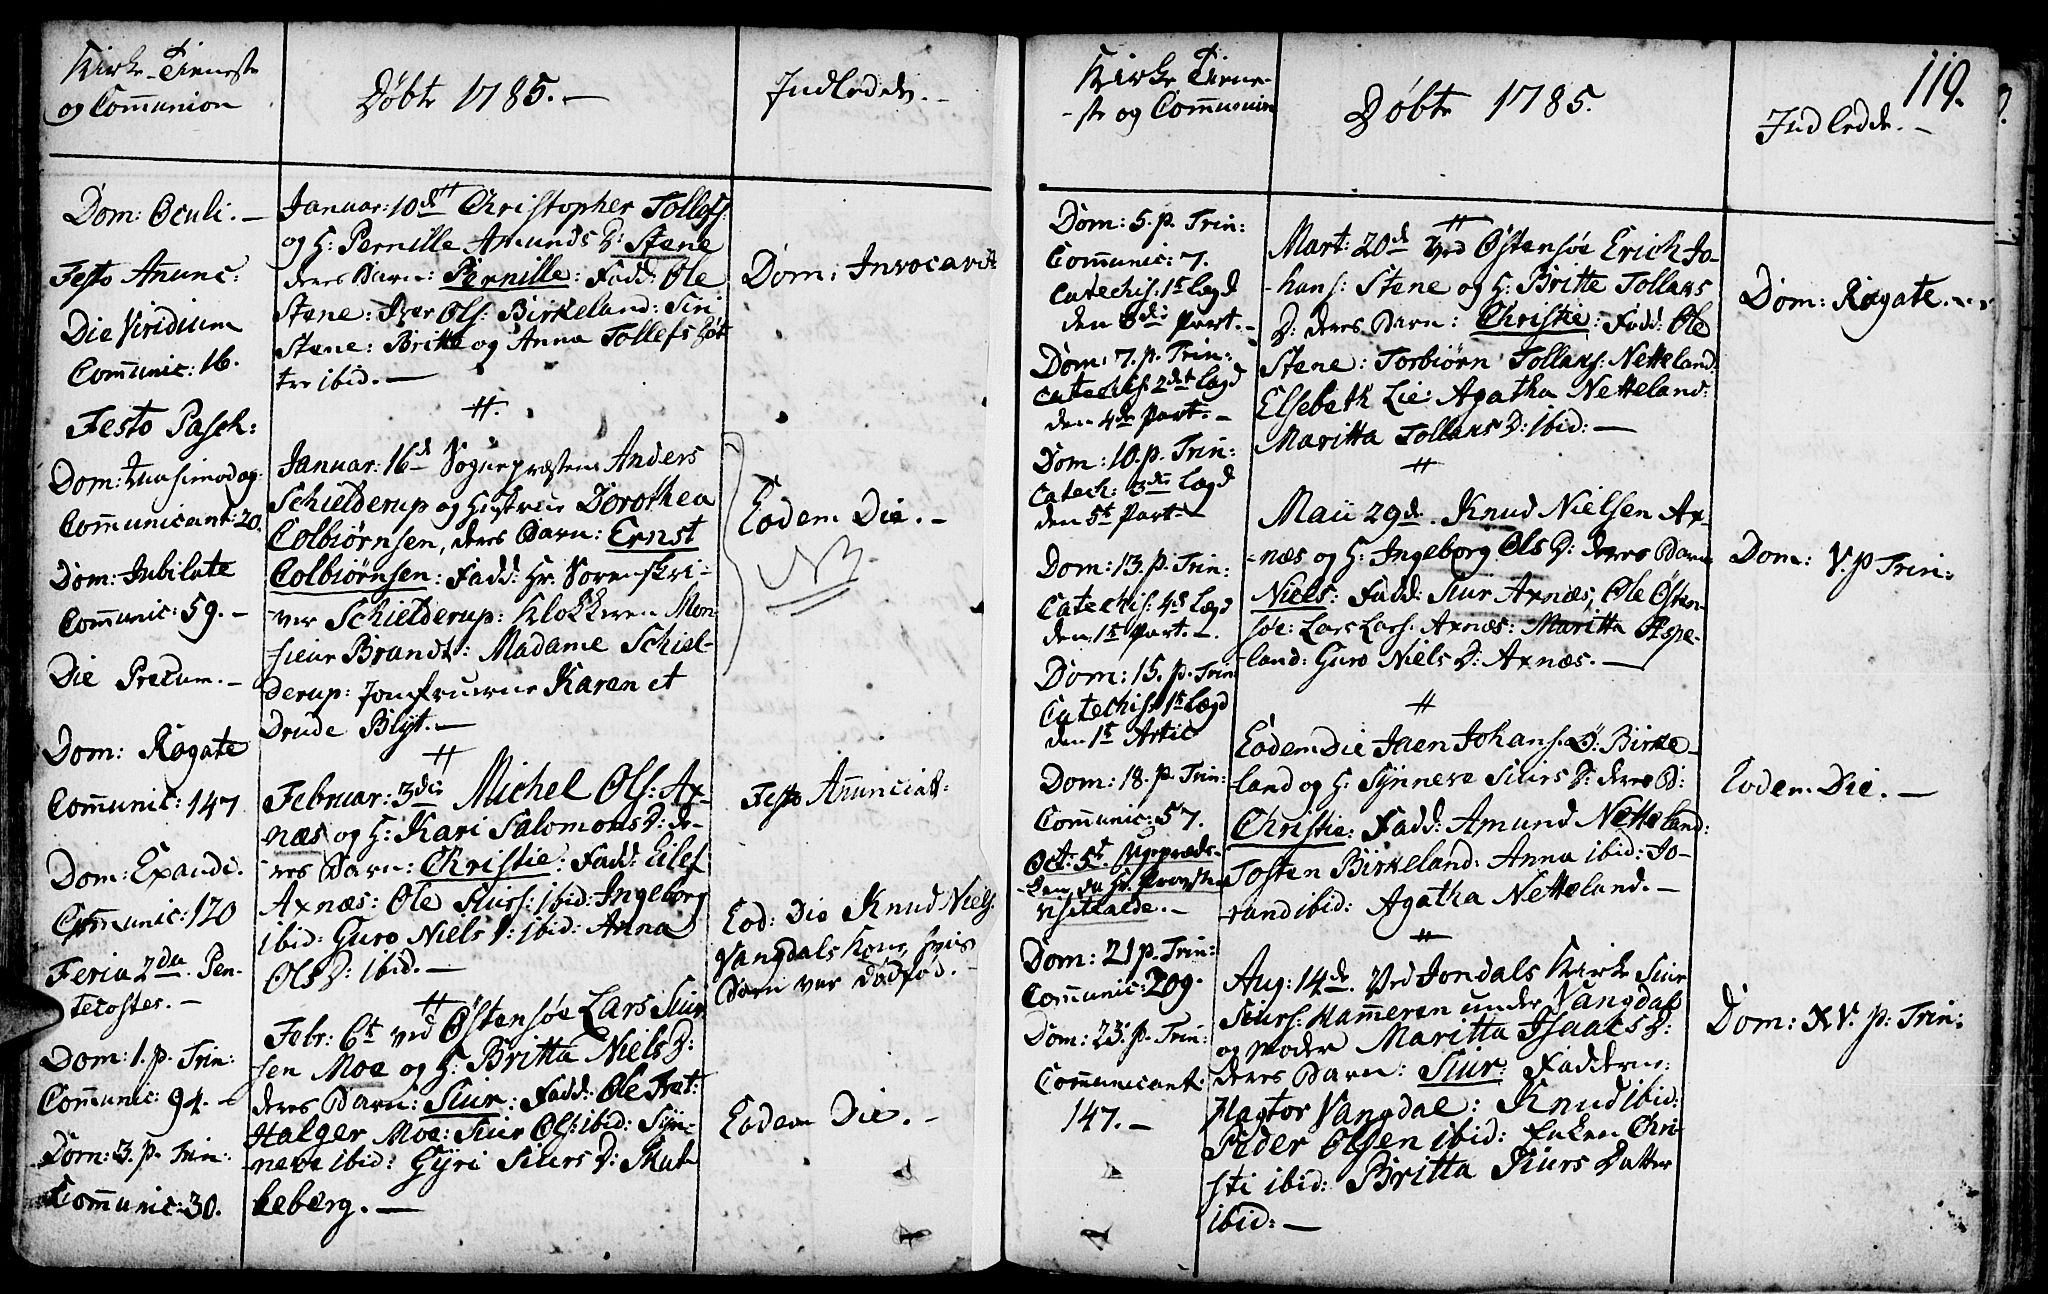 Kirke-Tieneste
og Com̅union
Døbte 1785.-
Indledede.-
Dom: Oculi.-
Festo An̅unc:
Die Viridium
Com̅unic: 16.
Festo Pasch:
Dom: Quasimodog:
Com̅unicant: 20.
Dom: Jubilate
Com̅unic: 59.-
Die Precum.-
Dom: Rogate
Com̅unic: 147
Dom: Exaudi.
Com̅unic: 120
Feria 2da Pen-
tecostes.-
Dom: 1. p. Trin:
Com̅unic: 94.-
Dom: 3. p. Trin:
Com̅unic: 30.
Januar: 10de Christopher Tollefs:
og H: Pernille Amunds D: Stene
deres Barn: Pernille: Fadd: Ole
Stene: Iver Ols: Birkeland: Siri
Stene: Britte og Anna Tollefs Døt
tre ibid.-
#.
Januar: 16d Sognepræsten Anders
Schielderup og Hustrue Dorothea
Colbiørnsen, deres Barn: Ernst
Colbiørnsen: Fadd: Hr. Sorenskri-
ver Schielderup: Klokkeren Mon-
sieur Brandt: Madame Schiel-
derup: Jomfruerne Karen et
Drude Blyt.-
#
Februar: 3die Michel Ols: Ax-
næs og H: Kari Salomons D: de-
res Barn: Christie: Fadd: Eilef
Axnæs: Ole Siurs: ibid: Ingeborg
ibid: Guro Niels D: ibid: Anna
Ols D: ibid.-
#
Febr: 6t ved Østensøe Lars Siur
sen Moe og H: Britta Niels D:
deres Barn: Siur: Fadd: Ole Tret:
Halger Moe: Siur Ols: ibid: Syn-
neve ibid: Gyri Siurs D: Skut
beberg.-
Dom: Invocavit
Eodem Die.-
NB
Festo An̅unciat:
Eod: Die Knud Niels:
Vangdals Kone, hvis
Barn var dødfød.-
Eodem Die.-
119.
Kirke Tiene-
-ste og Com̅union
Døbte 1785.
Indledde.-
Dom: 5. p. Trin:
Com̅unic: 7.
Catechis: 1st Lægd
den 3die Part.-
Dom: 7. p. Trin:
Catechis: 2det Lægd
den 4de Part.-
Dom: 10. p. Trin:
Catech: 3die Lægd
den 5t Part.-
Dom: 13. p. Trin:
Catechis: 4de Lægd
den 1st Part.-
Dom: 15. p. Trin
Catechis: 1st Lægd
den 1st Artic
Dom: 18. p. Trin:
Com̅unic: 57.
Oct: 5t Ugepræd-
ken, da Hr. Provsten
visiterede.-
Dom: 21 p. Trin:
Com̅unic: 209.
Dom: 23. p. Trin:
Com̅unicant:
147.-
#
Mart: 20de ved Østensøe Erich Jo-
-hans: Stene og H: Britte Tollaks
D: deres Barn: Christie: Fadd: Ole
Stene: Torbiørn Tollaks: Netteland:
Elsebeth Lie: Agatha Netteland:
Maritta Tollaks D: ibid:-
#
Maii 29de. Knud Nielsen Ax-
-næs og H: Ingeborg Ols D: deres Barn
Niels: Fadd: Siur Axnæs, Ole Østen-
søe: Lars Lars: Axnæs: Maritta Aspe-
-land: Guro Niels D: Axnæs.-
#
Eodem Die Jaen Johans: Ø: Birke-
land og H: Synneve Siurs D: deres B:
Christie: Fadd: Amund Netteland:
Tosten Birkeland: Anna ibid: Jo-
rand ibid: Agatha Netteland.-
#
Aug: 14de. Ved Jondals Kirke Siur
Siurs: Hammeren under Vangdal
og Moder Maritta Isaacs D:
deres Barn: Siur: Fadderne:
Hagtor Vangdal: Knud ibid:
Peder Olsen ibid: Enken Chri-
sti ibid: Britta Siurs Datter
ibid:-
Dom: Rogate.-
Dom: V. p Trin:
Eodem Die.-
Dom: XV. p. Trin: